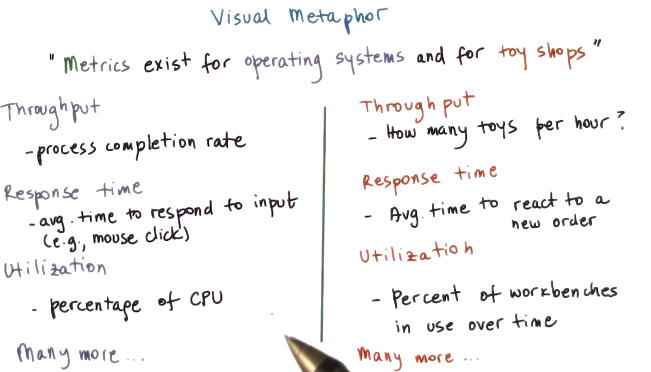 Visual Metaphor
"Metrics exist for operating systems and for toy shops"
Throughput
-process completion rate
Response time
-avg. time to respond to input
(e.g., mouse click)
Utilization
- percentage of CPU
Many more ...
Throughput
- How many toys per hour?
Response time
- Avg. time to react to a
new order
Utilization
- Percent of workbenches
in use over time
Many more ...